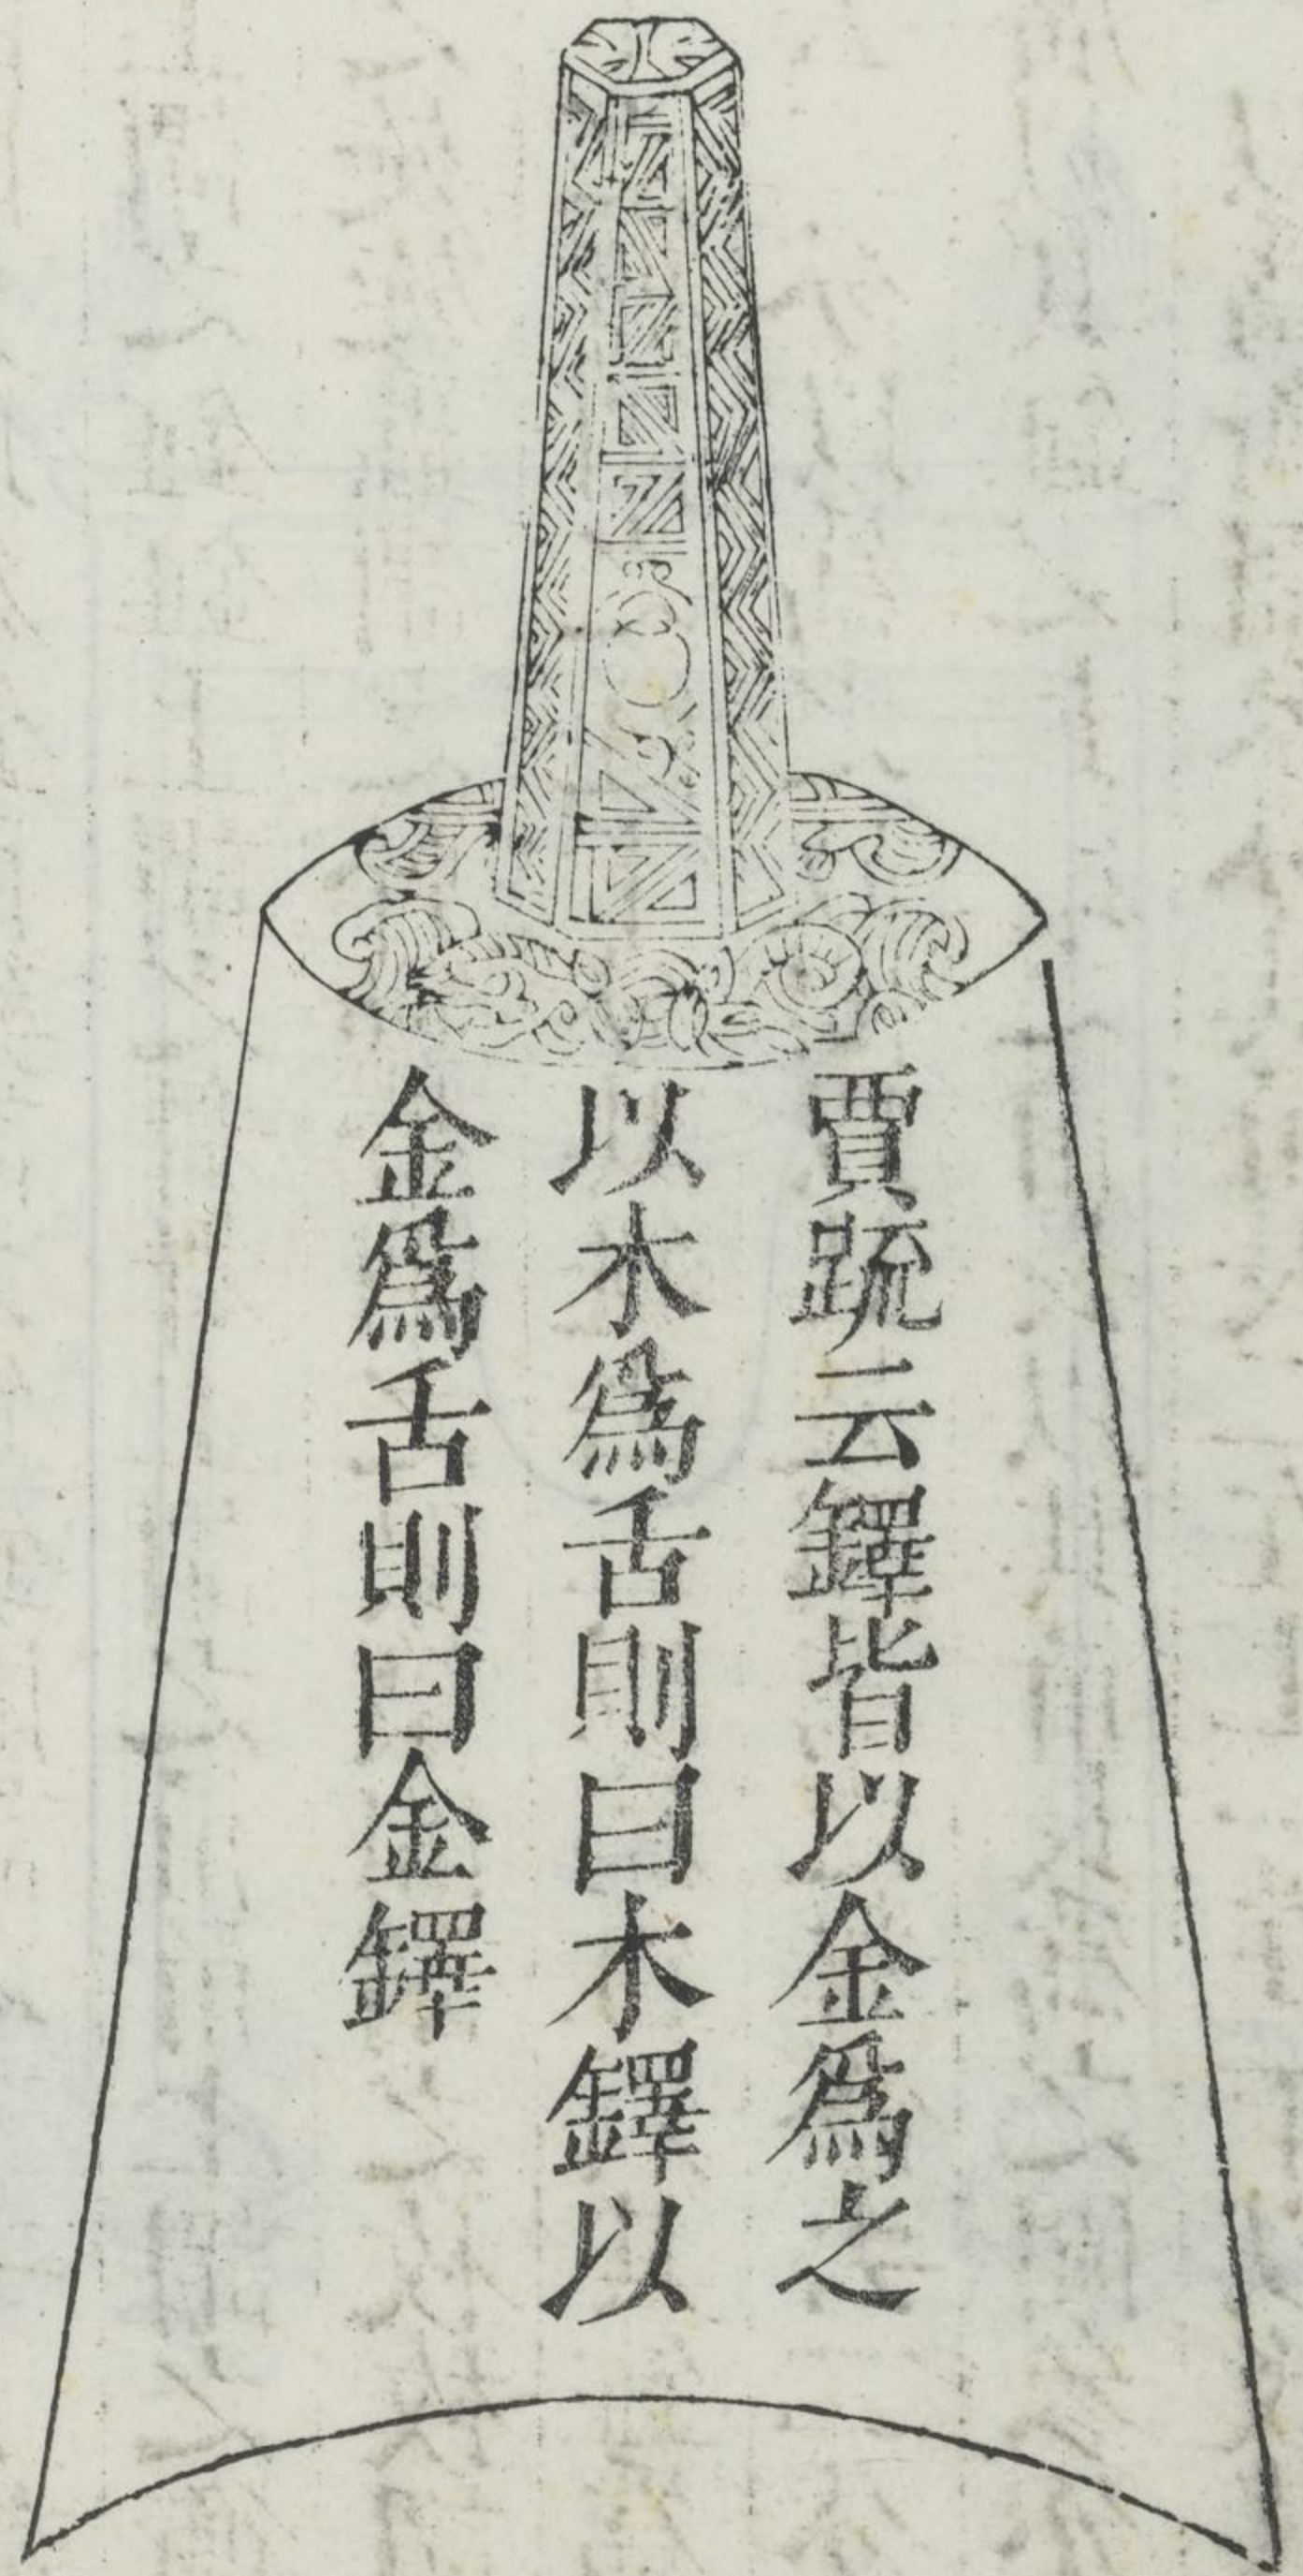 賈䟽云鐸皆以金爲之
以木爲舌則曰木鐸以
金爲舌則曰金鐸